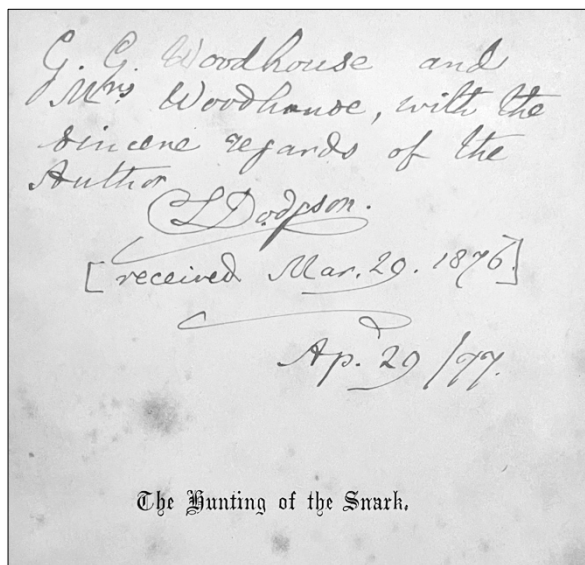 G. G. Woodhouse and
Mrs Woodhouse, with the
sincere regards of the
Author
CLDodgson.
[received Mar. 29. 1876]
Ap. 29/77.
The Hunting of the Snark.